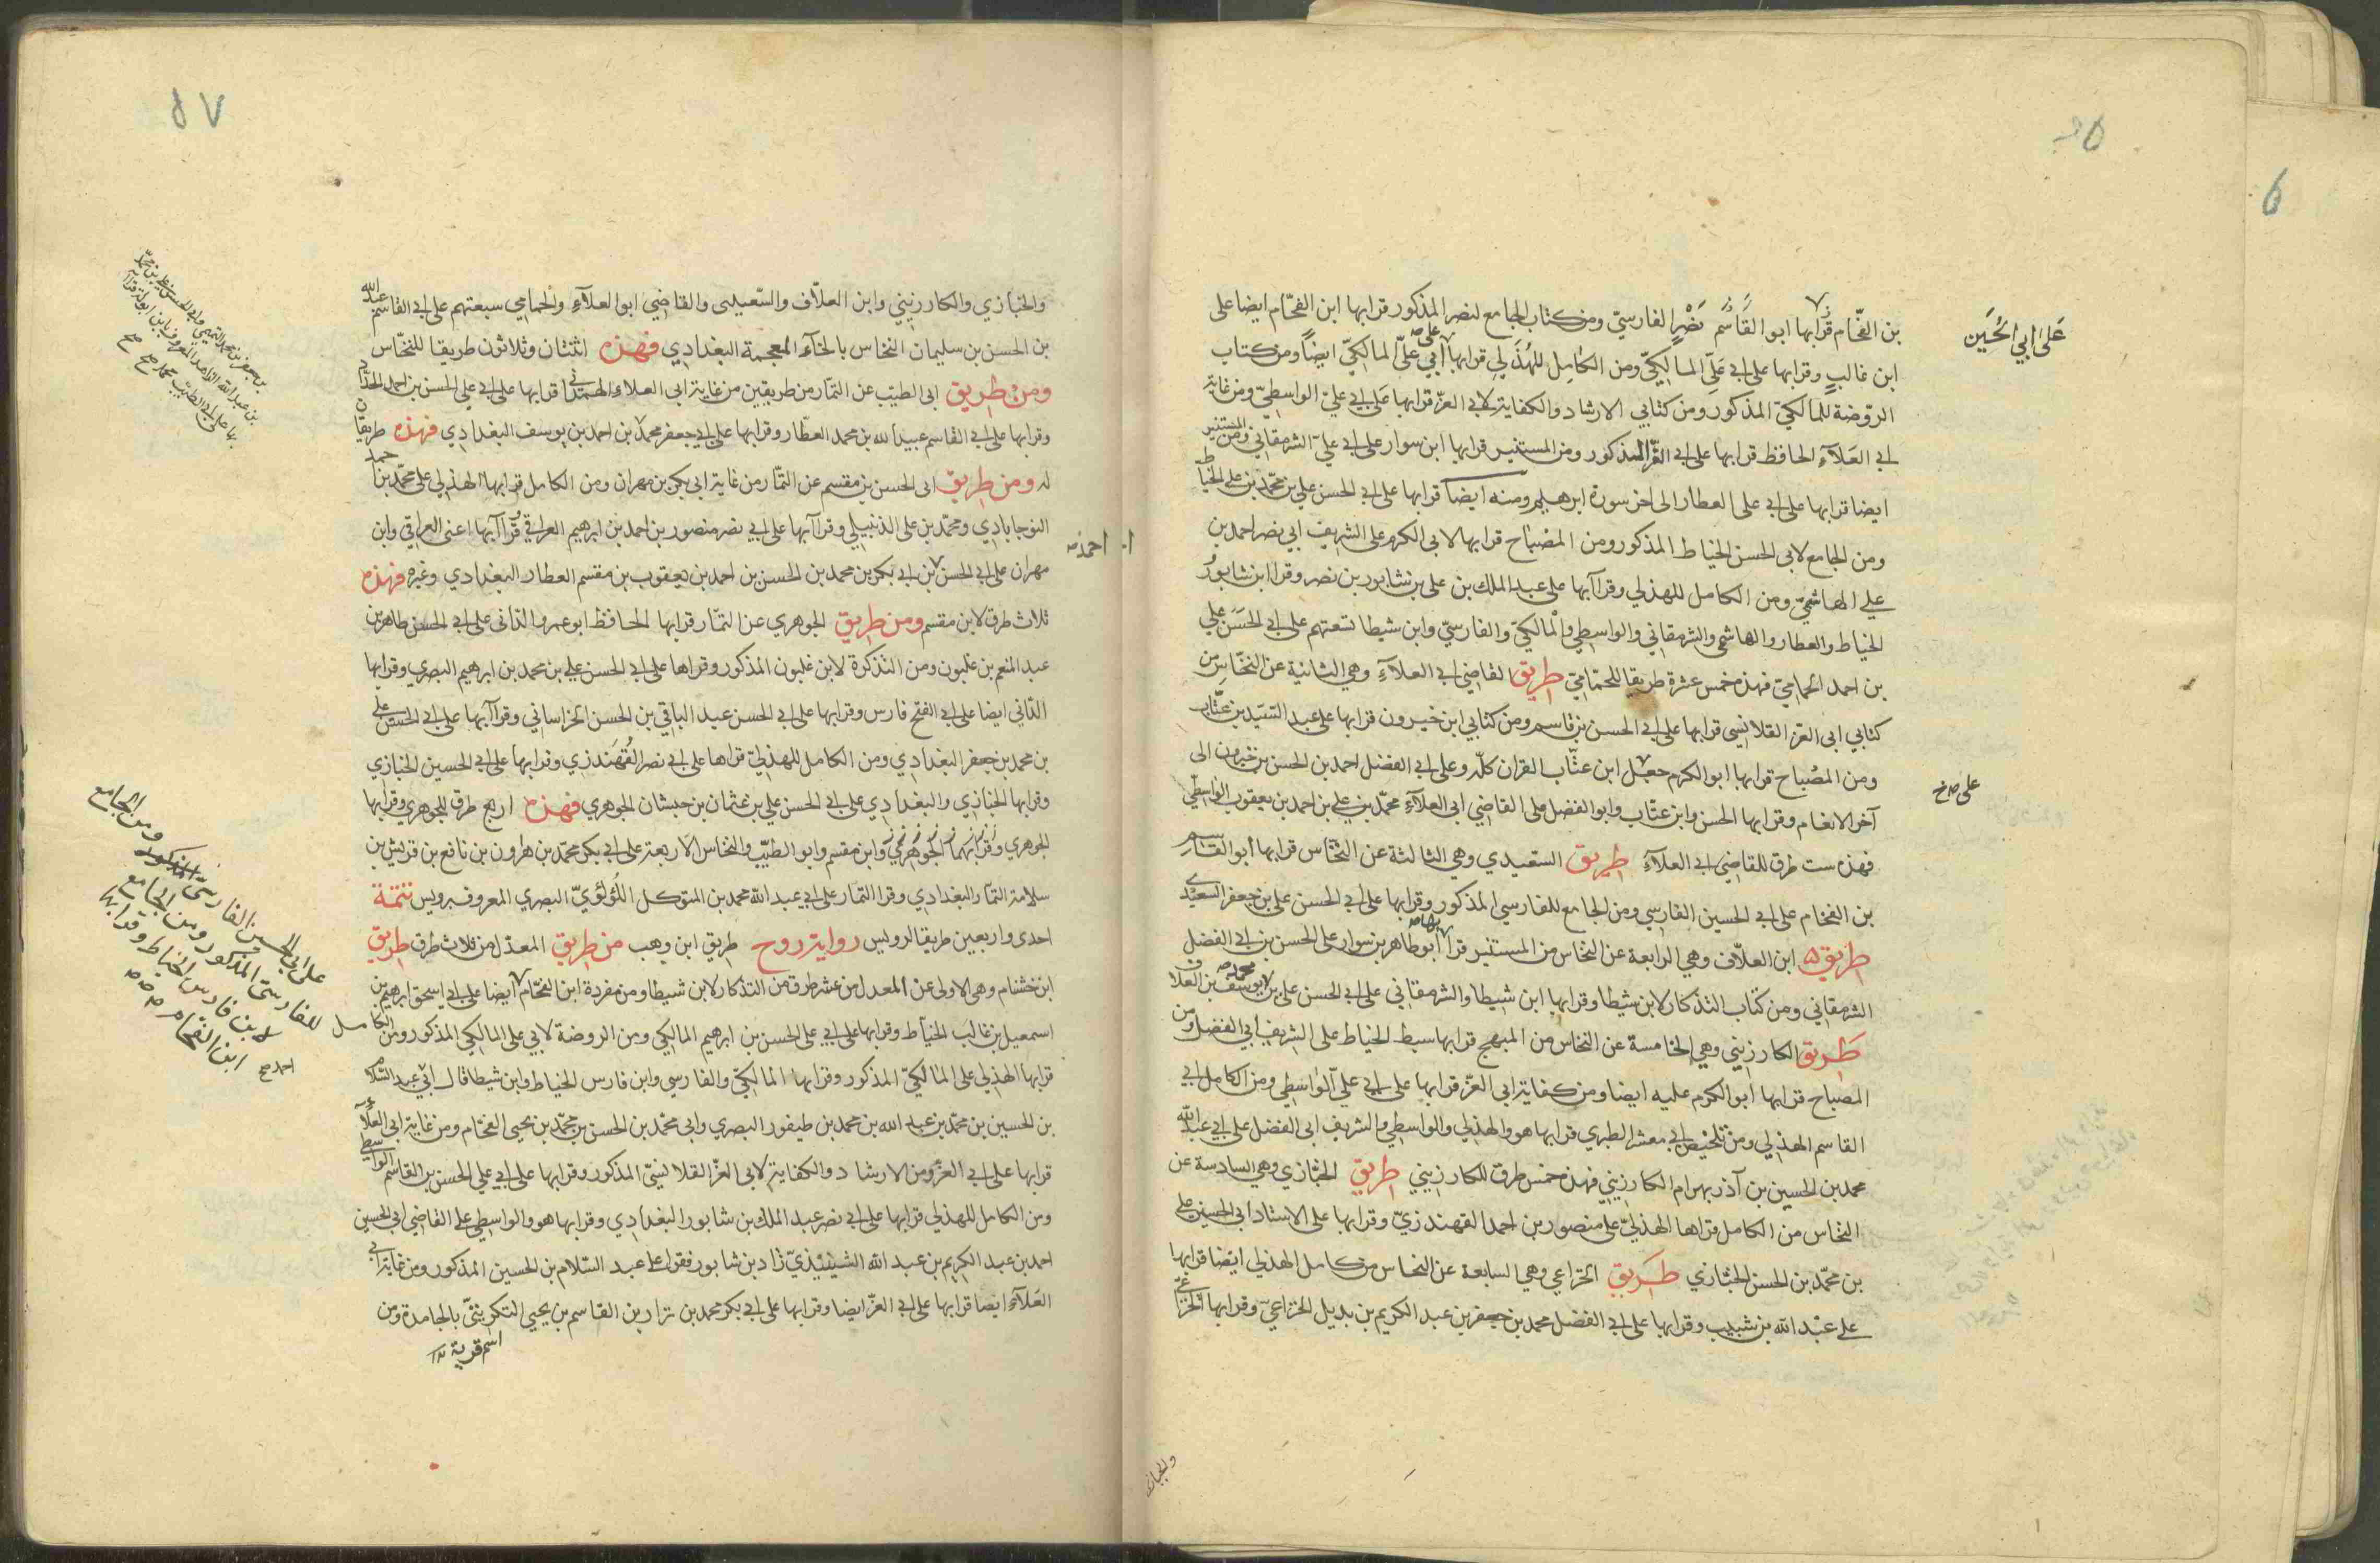 بن الفحّام قرا بها ابو القاسم نصر الفارسيّ ومن كتاب الجامع لنصر المذكور قرا بها ابن الفحّام ايضا على
على ابي الحُسَين
ابن غالب وقرا بها على ابي عليّ المالكيّ ومن الكامل للهُذَلي قرا بها على ابي عليّ المالكيّ ايضاً ومن كتاب
الرّوضة للمالكيّ المذكور ومن كتابي الارشاد والكفاية لابي العزّ قرا بها على ابي عليّ الواسطيّ ومن غاية
ابي العَلآءِ الحافظ قرا بها على ابي العزّ المذكور ومن المستنير قرا بها ابن سوار على ابي عليّ الشرمقاني ومن المستنير
ايضا قرا بها على ابي علي العطار الى اخر سورة ابرهيم ومنه ايضا قرا بها على ابي الحسن علي بن محمّد بن علي الخياط
ومن الجامع لابي الحسن الخياط المذكور ومن المصباح قرا بها لابي الكرم على الشريف ابي نصر احمد بن
علي الهاشميّ ومن الكامل للهذلي وقرا بها على عبد الملك بن علي بن شابور بن نصر وقرا ابن شابور
الخياط والعطار والهاشمي والشرمقاني والواسطي والمالكيّ والفارسيّ وابن شيطا تسعتهم على ابي الحَسَن علي
بن احمد الحمّاميّ فهذه خمس عشرة طريقا للحمّاميّ طريق القاضي ابي العلآءِ وهي الثانية عن النخّاس من
كتابي ابي العزّ القلانسي قرا بها على ابي الحسن بن قاسم ومن كتابي ابن خيرون قرا بها على عبد السّيّد بن عتّاب
ومن المصْباح قرا بها ابو الكرم على ابن عتّاب القران كلّه وعلى ابي الفضل احمد بن الحسن بن خيرون الى
على صح
آخر الانعام وقرا بها الحسن وابن عتّاب وابو الفضل على القاضي ابي العلآءِ محمّد بن علي بن احمد بن يعقوب الواسطي
فهذه ست طرق للقاضي ابي العلآءِ طريق السّعيدي وهي الثالثة عن النخّاس قرا بها ابو القاسم
بن الفحام على ابي الحسين الفارسي ومن الجامع للفارسي المذكور وقرا بها على ابي الحسن علي بن جعفر السعيدي
طريق ابن العلّاف وهي الرابعة عن النخاس من المستنير قرا بها ابو طاهر بن سوار على الحسن بن ابي الفضل
الشرمقاني ومن كتاب التذكار لابن شيطا وقرا بها ابن شيطا والشرمقاني على ابي الحسن علي بن محمد بن يوسف بن العلاف
طَريق الكارزيني وهي الخامسة عن النخاس من المبهج قرا بها سبط الخياط على الشريف ابي الفضل ومن
المصباح قرا بها ابو الكرم عليه ايضا ومن كفاية ابي العزّ قرا بها على ابي عليّ الواسطي ومن الكامل ابي
القاسم الهذلي ومن تلخيص ابي معشر الطبري قرا بها هو والهذلي والواسطي والشريف ابي الفضل على ابي عبد اللّه
محمد بن الحسين بن آذربهرام الكارزيني فهذه خمس طرق للكارزيني طريق الخبّازي وهي السادسة عن
النخاس من الكامل قراها الهذليّ على منصور بن احمد القهندزيّ وقرا بها على الاستاد ابي الحسين علي
بن محمّد بن الحسن الخبّازي طَريق الخزاعي وهي السابعة عن النخاس من كامل الهذلي ايضا قرا بها
على عبْد اللّه بن شبيب وقرا بها على ابي الفضل محمد بن جعفر بن عبد الكريم بن بديل الخزاعيّ وقرا بها الخزاعيّ
والخبازي
٥٧
والخبّازي والكارزيني وابن العلّاف والسّعيدي والقاضي ابو العلآءِ والحمامي سبعتهم على ابي القاسم عبد الله
بن الحسن بن سليمان النخاس بالخآءِ المعجمة البغدادي فهذه اثنتان وثلاثون طريقا للنخّاس
ومن طريق ابي الطيّب عن التمّار من طريقين من غاية ابي العلاء الهمدانيّ قرا بها على ابي علي الحسن بن احمد الحدّاد
وقرا بها على ابي القاسم عبيد الله بن محمد العطّار وقرا بها على ابي جعفر محمد بن احمد بن يوسف البغدادي فهذه طريقان
بن جعفر بن محمد التميمي وابي الحسن
بن عبد الله الزاهد المعروف بابن ابولة قرآ
بها على ابي الطيب محمد صح
له ومن طريق ابي الحسن بن مقسم عن التمّار من غاية ابي بكر بن مهران ومن الكامل قرا بها الهذلي على محمّد بن احمد
النوجاباذي ومحمّد بن علي الذنبيلي وقرا بها على ابي نصر منصور بن احمد بن ابرهيم العراقي قرا بها اعني العراقي وابن
مهران على ابي الحسن بن ابي بكر بن محمد بن الحسن بن احمد بن يعقوب بن مقسم العطار البغدادي وغيره فهذه
احمد صح
ثلاث طرق لابن مقسم ومن طريق الجوهري عن التمّار قرا بها الحافظ ابو عمرو الدّاني على ابي الحسن طاهر بن
عبد المنعم بن غلبون ومن التذكرة لابن غلبون المذكور وقراها على ابي الحسن علي بن محمد بن ابرهيم البصري وقرا بها
الدّاني ايضا على ابي الفتح فارس وقرا بها على ابي الحسن عبد الباقي بن الحسن الخراساني وقرا بها على ابي الحسن علي
بن محمد بن جعفر البغدادي ومن الكامل للهذليّ قراها على ابي نصر القُهَندزي وقرا بها على ابي الحسين الخبازي
وقرا بها الخبّازي والبغدادي على ابي الحسن علي بن عثمان بن حبشان الجوهري فهذه اربع طرق للجوهري وقرا بها
الجوهري وابن مقسم وابو الطيّب والنخاس الاربعة على ابي بكر محمّد بن هارون بن نافع بن قريش بن
سلامة التمّار البغدادي وقرا التمّار على ابي عبد اللّه محمد بن المتوكل اللّؤلؤيّ البصري المعروف برويس تتمّة
احدى واربعين طريقا لرويس رواية روح طريق ابن وهب من طريق المعدّل من ثلاث طرق طريق
ابن خشنام وهي الاولى عن المعدل من عشر طرق من التذكار لابن شيطا ومن مفردة ابن الفحّام ايضا على ابي اسحق ابرهيم بن
اسمعيل بن غالب الخيّاط وقرا بها على ابي علي الحسن بن ابرهيم المالكي ومن الروضة لابي علي المالكي المذكور ومن الكامل
قرا بها الهذلي على المالكيّ المذكور وقرا بها المالكيّ والفارسي وابن فارس الخياط وابن شيطا على ابي عبد السّلام
على ابي الحسين الفارسيّ ومن الجامع
للفارسيّ المذكور ومن الجامع
لابن فارس الخياط وقرا بها
ابن الفحام صح
احمد صح
بن الحسين بن محمّد بن عبد الله بن محمد بن طيفور البصري وابي محمّد بن الحسن بن محمّد بن يحيى الفحّام ومن غاية ابي العلآء
قرا بها على ابي العزّ ومن الارشاد والكفاية لابي العزّ القلانسيّ المذكور وقرا بها على ابي علي الحسن بن القاسم الواسطي
ومن الكامل للهذلي قرا بها على ابي نصر عبد الملك بن شابور البغدادي وقرا بها هو والواسطي على القاضي ابي الحسين
احمد بن عبد الكريم بن عبد اللّه الشينيزيّ زاد بن شابور فقرا على عبد السّلام بن الحسين المذكور ومن غاية ابي
العَلآءِ ايضا قرا بها على ابي العزّ ايضا وقرا بها على ابي بكر محمد بن نزار بن القاسم بن يحيى التكريتيّ بالجامدة ومن
اسم قرية